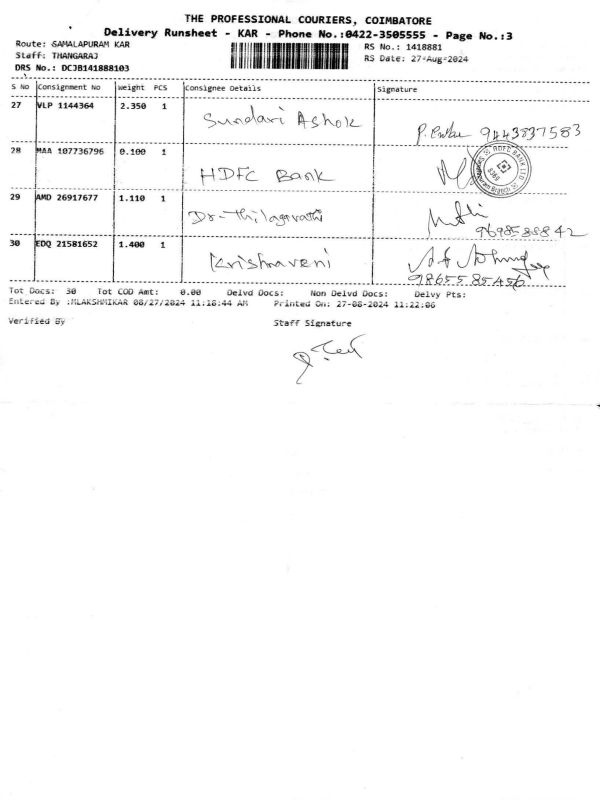 THE PROFESSIONAL COURIERS, COIMBATORE
Delivery Runsheet - KAR - Phone No.:0422-3505555 - Page No.:3
Route: SAMALAPURAM KAR RS No.: 1418881
Staff: THANGARAJ RS Date: 27-Aug-2024
DRS No.: DCJB141888103
S No Consignment No Weight PCS Consignee Details Signature
27 VLP 1144364 2.350 1 Sundari Ashok 9443837583
28 MAA 107736796 0.100 1 HDFC Bank HDFC BANK LTD
29 AMD 26917677 1.110 1 Dr-Thilagavathi 9698588842
30 EDQ 21581652 1.400 1 Krishnaveni 9865585456
Tot Docs: 30 Tot COD Amt: 0.00 Delvd Docs: Non Delvd Docs: Delvy Pts:
Entered By :MLAKSHMIKAR 08/27/2024 11:18:44 AM Printed On: 27-08-2024 11:22:06
Verified By Staff Signature